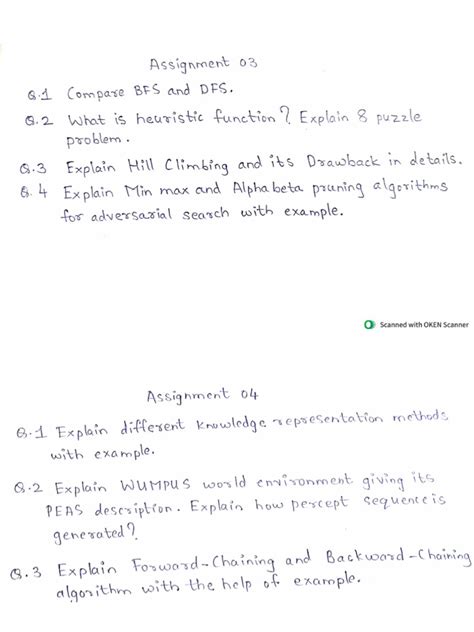 Assignment 03
Q.1 Compare BFS and DFS.
Q.2 What is heuristic function? Explain 8 puzzle
problem.
Q.3 Explain Hill Climbing and its Drawback in details.
Q.4 Explain Min max and Alpha beta pruning algorithms
for adversarial search with example.
Scanned with OKEN Scanner
Assignment 04
Q.1 Explain different knowledge representation methods
with example.
Q.2 Explain WUMPUS world environment giving its
PEAS description. Explain how percept sequence is
generated?
Q.3 Explain Forward-Chaining and Backward-Chaining
algorithm with the help of example.